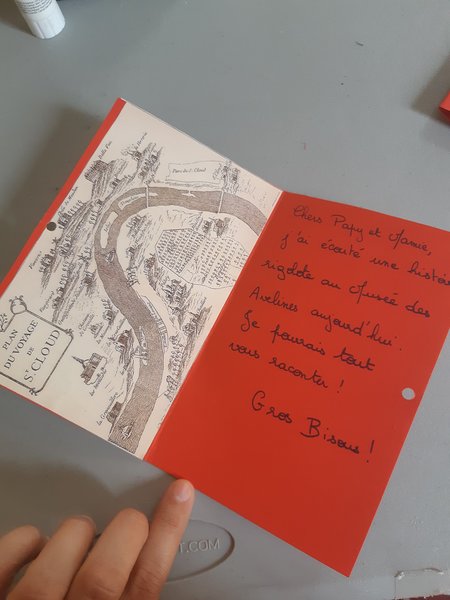 Parc de St Cloud
PLAN
DU VOYAGE
DE
St CLOUD
Chers Papy et Mamie,
j'ai écouté une histoire
rigolote au Musée des
Avelines aujourd'hui.
Je pourrais tout
vous raconter !
Gros Bisous !
.COM